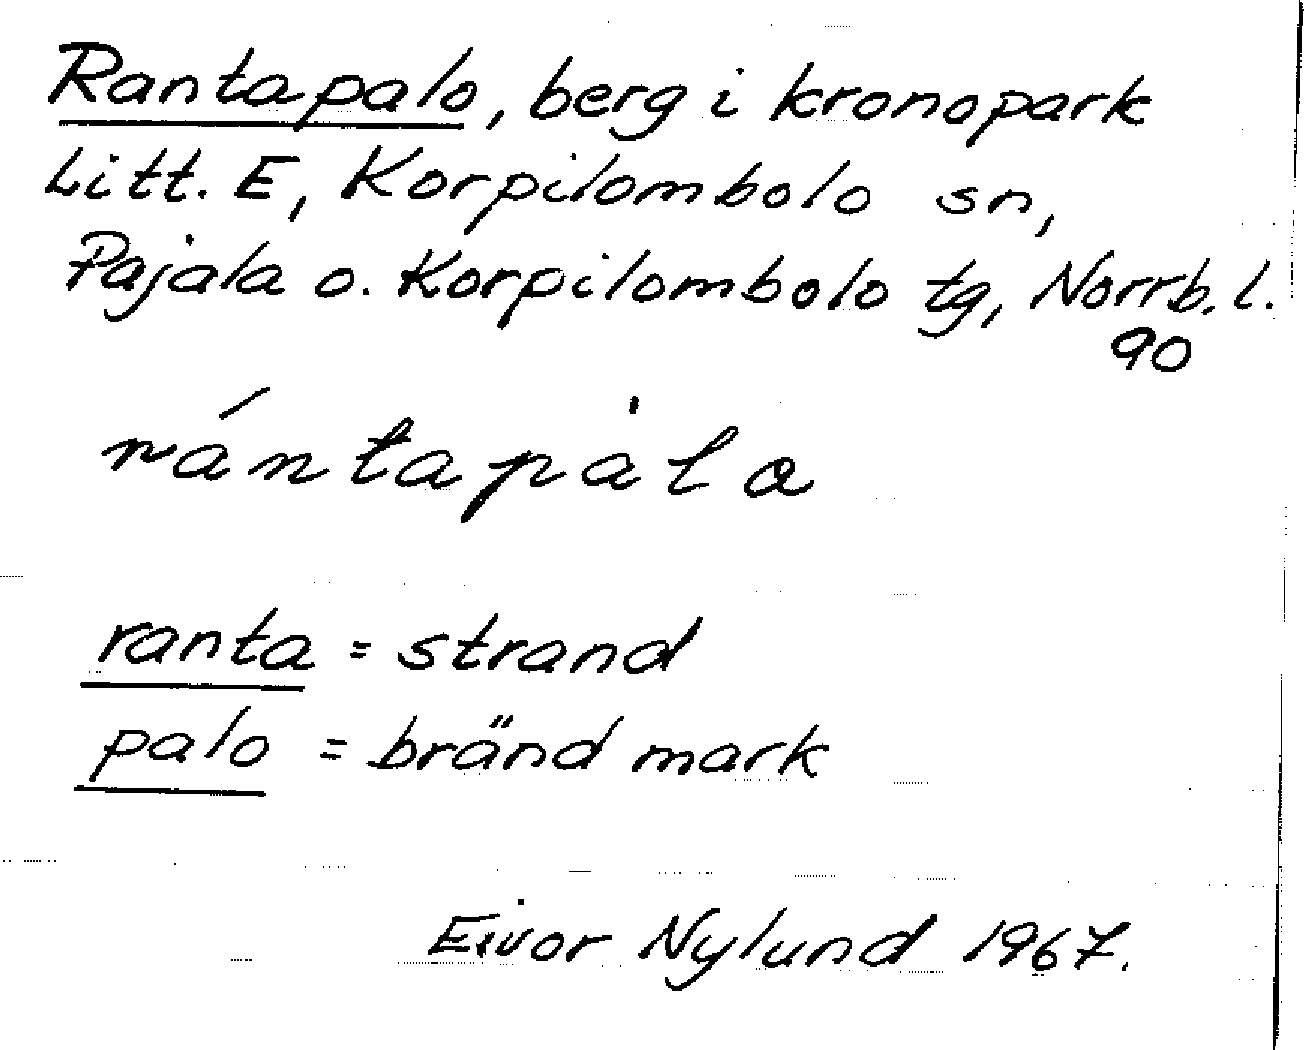 Rantapalo, berg i kronopark
Litt. E, Korpilombolo sn,
Pajala o. Korpilombolo tg, Norrb. l.
90
rántapàlo
ranta = strand
palo = bränd mark
Eivor Nylund 1967.